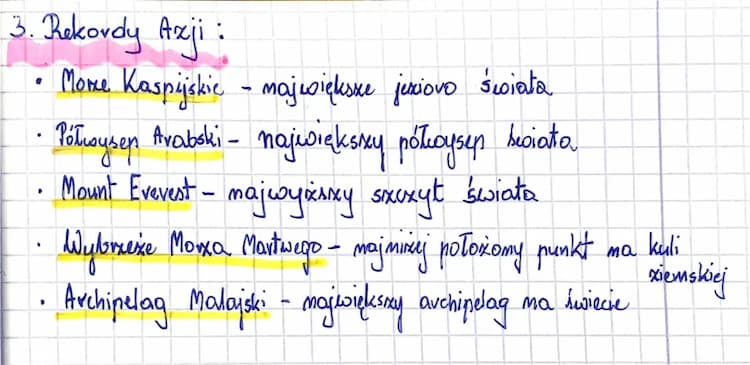 3. Rekordy Azji:
• Morze Kaspijskie - największe jezioro świata
• Półwysep Arabski - największy półwysep świata
• Mount Everest - najwyższy szczyt świata
• Wybrzeże Morza Martwego - najniżej położony punkt na kuli
ziemskiej
• Archipelag Malajski - największy archipelag na świecie